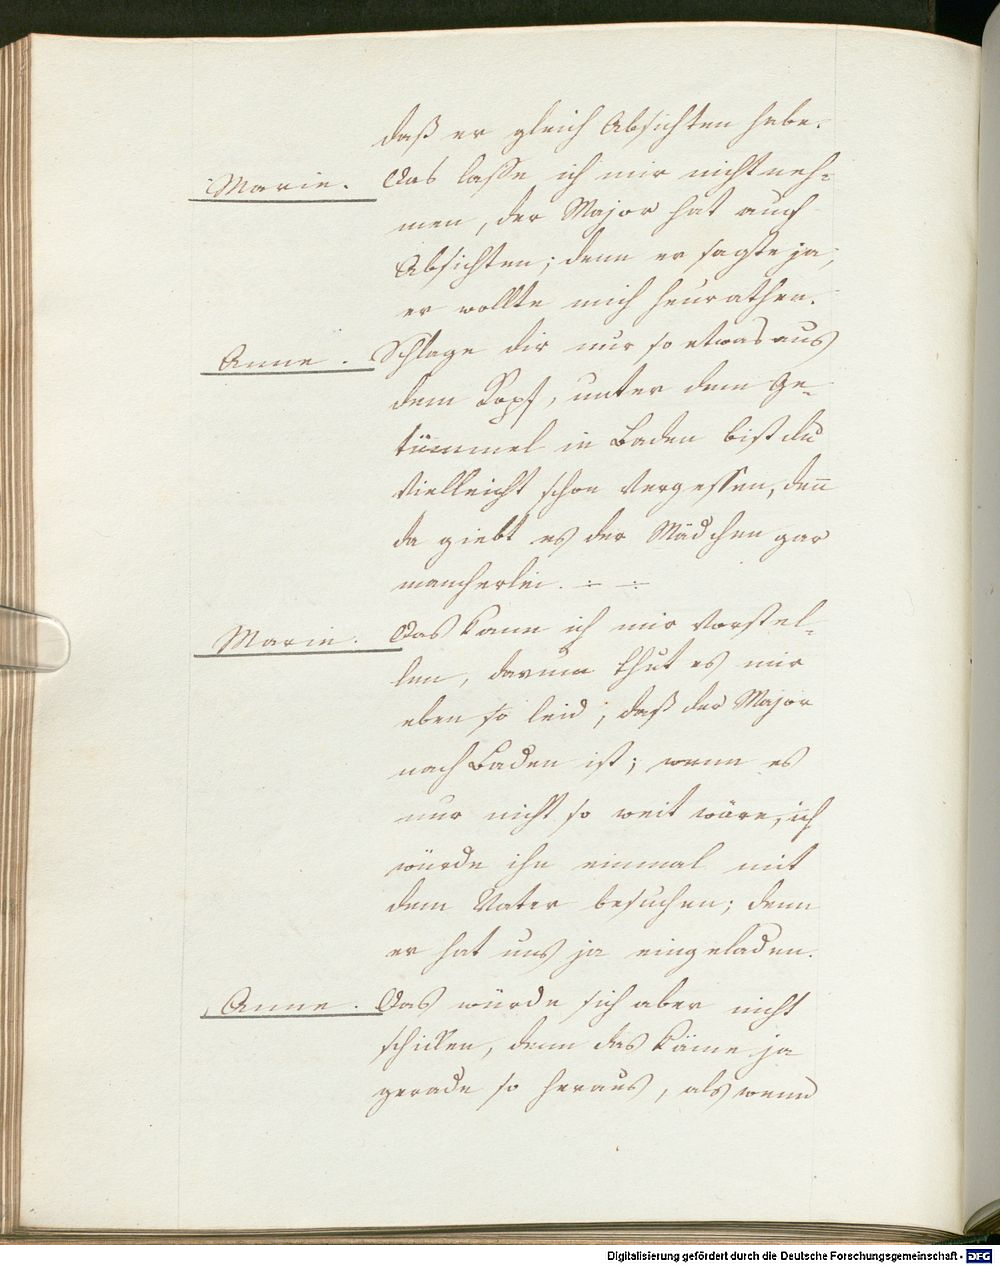 daß er gleich Absichten habe.
Marie. Das lasse ich mir nicht neh=
men, der Major hat auch
Absichten; denn er sagte ja,
er wollte mich heurathen.
Anne. Schlage dir nur so etwas aus
dem Kopf, unter dem Ge=
tümmel in Baden bist du
vielleicht schon vergessen, den̄
da giebt es der Mädchen gar
mancherlei. ÷ ÷
Marie. Das kann ich mir vorstel=
len, darum thut es mir
eben so leid, daß der Major
nach Baden ist; wenn es
nur nicht so weit wäre, ich
würde ihn einmal mit
dem Vater besuchen; denn
er hat uns ja eingeladen.
Anne. Das würde sich aber nicht
schicken, denn das käme ja
gerade so heraus, als wenn
Digitalisierung gefördert durch die Deutsche Forschungsgemeinschaft - DFG